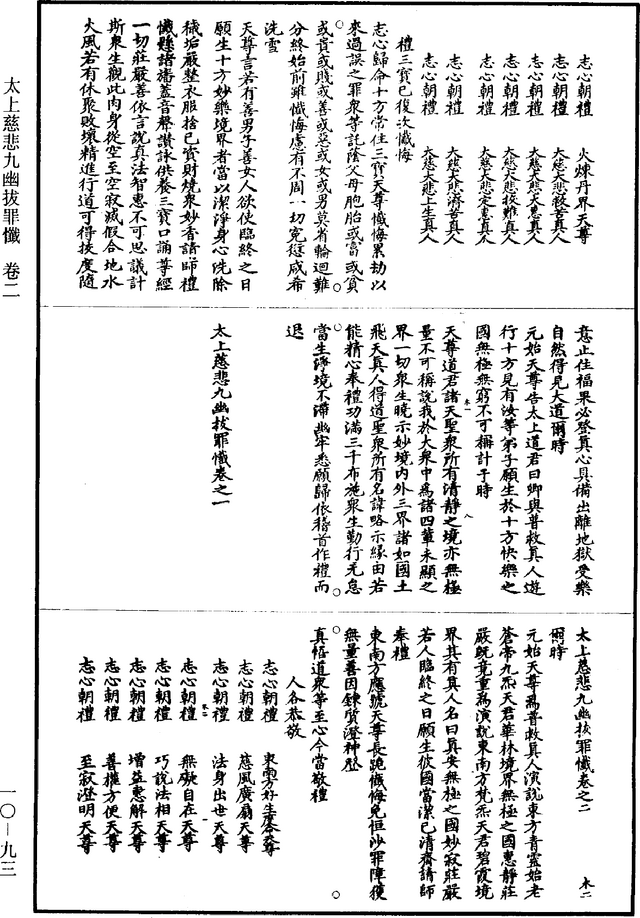 志心朝禮　火煉丹界天尊
志心朝禮　大慈大悲救苦真人
志心朝禮　大慈大悲大惠真人
志心朝禮　大慈大悲救難真人
志心朝禮　大慈大悲定惠真人
志心朝禮　大慈大悲濟苦真人
志心朝禮　大慈大悲上生真人
禮三寶已復次懺悔
志心歸命十方常住三寶天尊懺悔累劫以
來過誤之罪衆等託蔭父母胞胎或富或貧
或貴或賤或善或惡或女或男莫省輪迴難
分終始前雖懺悔慮有不周一切冤愆咸希
洗雪
天尊言若有善男子善女人欲使臨終之日
願生十方妙樂境界者當以潔淨身心洗除
穢垢嚴整衣服捨已資財燒衆妙香請師禮
懺懸諸旛蓋音聲讚詠供養三寶口誦尊經
一切莊嚴善依言說真法智惠不可思議計
斯衆生觀此肉身從空至空寂滅假合地水
火風若有休聚敗壞精進行道可得拔度隨
意止住福果必登真心具備出離地獄受樂
自然得見大道爾時
元始天尊告太上道君曰卿與普救真人遊
行十方見有汝等弟子願生於十方快樂之
國無極無窮不可稱計于時
天尊道君諸天聖衆所有清靜之境亦無極
量不可稱說我於大衆中爲諸四輩未顯之
界一切衆生曉示妙境內外三界諸如國土
飛天真人得道聖衆所有名諱略示緣由若
能精心奉禮功滿三千布施衆生勤行无怠
當生淨境不滯幽牢悉願歸依稽首作禮而
退
太上慈悲九幽拔罪懺卷之一
太上慈悲九幽拔罪懺卷之二　木二
爾時
元始天尊爲普救真人演說東方青靈始老
蒼帝九炁天君華林境界無極之國惠靜莊
嚴旣竟重爲演說東南方梵炁天君碧霞境
界其有真人名曰真安無極之國妙寂莊嚴
若人臨終之日願生彼國當潔已清齋請師
奉禮
東南方應號天尊長跪懺悔免恒沙罪障獲
無量善因鍊質澄神登
真悟道衆等至心今當敬禮
人各恭敬
志心朝禮　東南方好生度命天尊
志心朝禮　慈風廣扇天尊
志心朝禮　法身出世天尊
志心朝禮　無礙自在天尊
志心朝禮　巧說法相天尊
志心朝禮　增益惠解天尊
志心朝禮　善權方便天尊
志心朝禮　至寂澄明天尊
太上慈悲九幽拔罪懺　卷二
一〇－九三